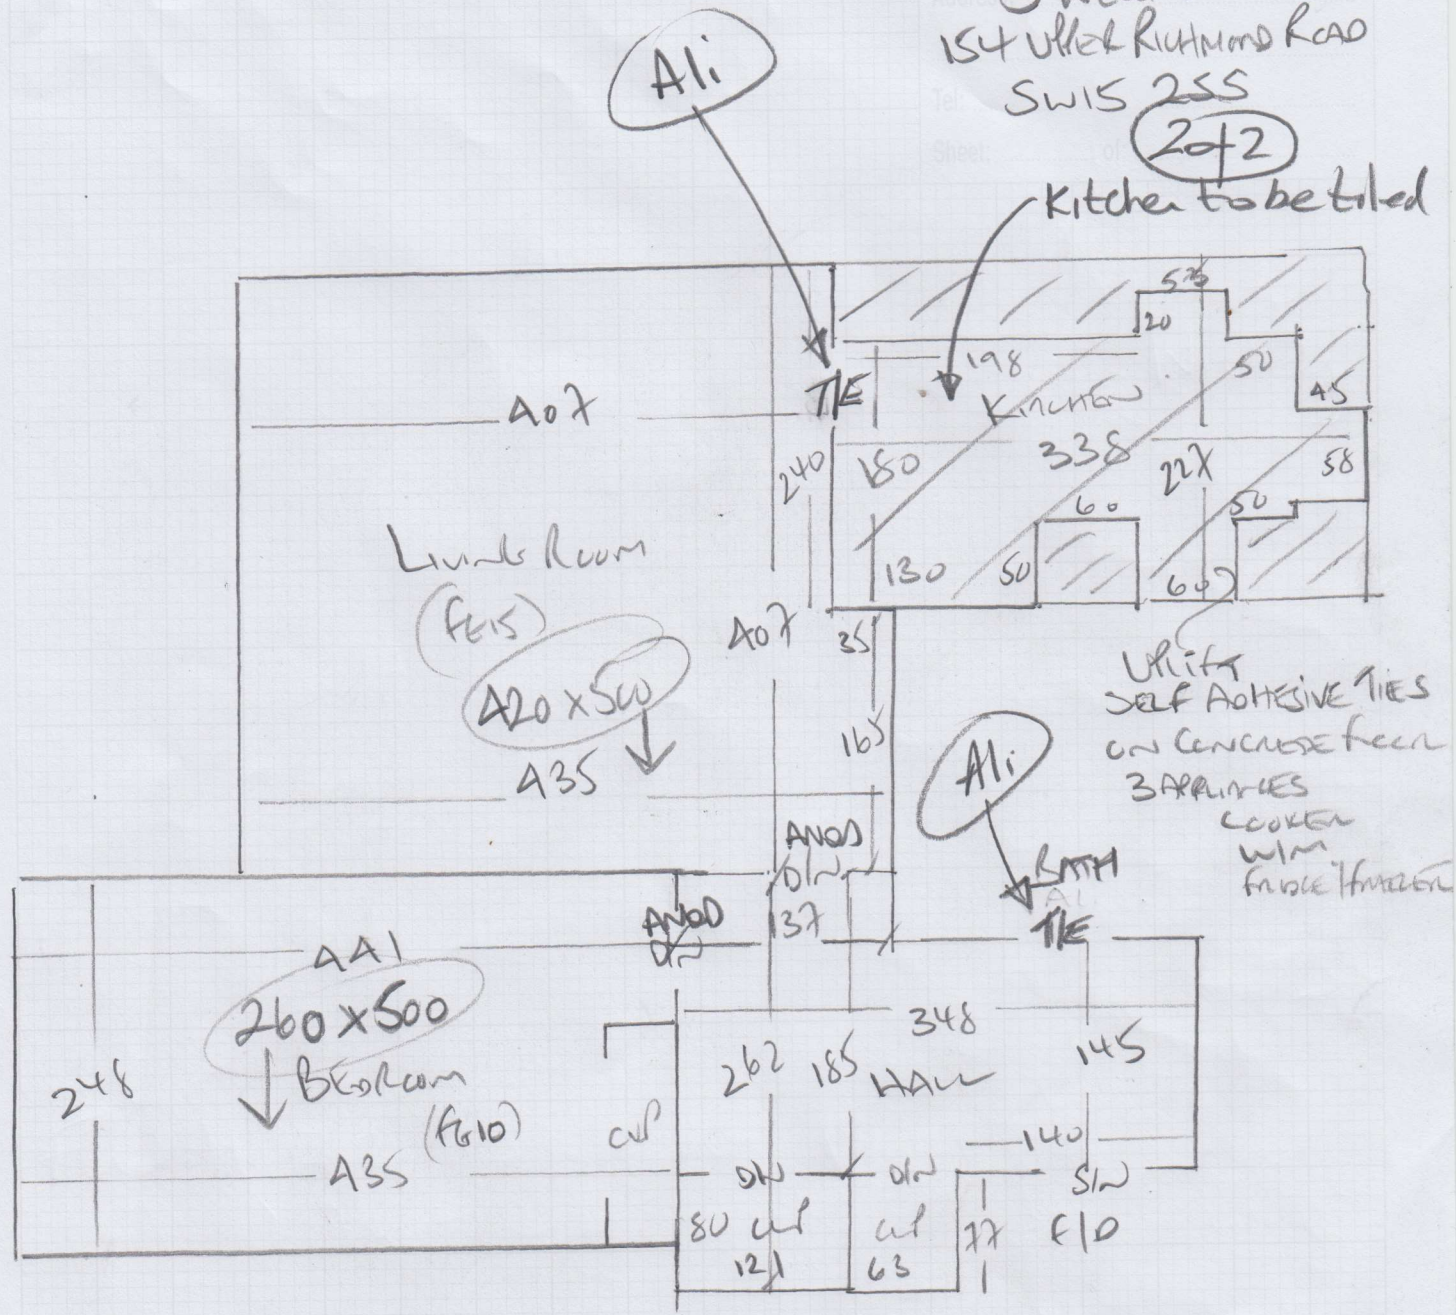 154 UPPER RICHMOND ROAD
SW15 2SS
Tel:
Sheet: of:
2 of 2
Ali
Kitchen to be tiled
526
20
198
50
T/E
KITCHEN
45
407
240
180
338
227
58
60
50
130
50
60
LIVING ROOM
(FE15)
407
35
420 x 500
435
165
UPLIFT
SELF ADHESIVE TILES
ON CONCRETE FLOOR
3 APPLIANCES
COOKER
W/M
FRIDGE/FREEZER
Ali
ANOD
D/N
BATH
T/E
137
ANOD
D/N
441
260 x 500
248
BEDROOM
(FG10)
435
CUP
348
262
185
HALL
145
140
D/N
D/N
S/N
80
CUP
CUP
77
F/D
121
63